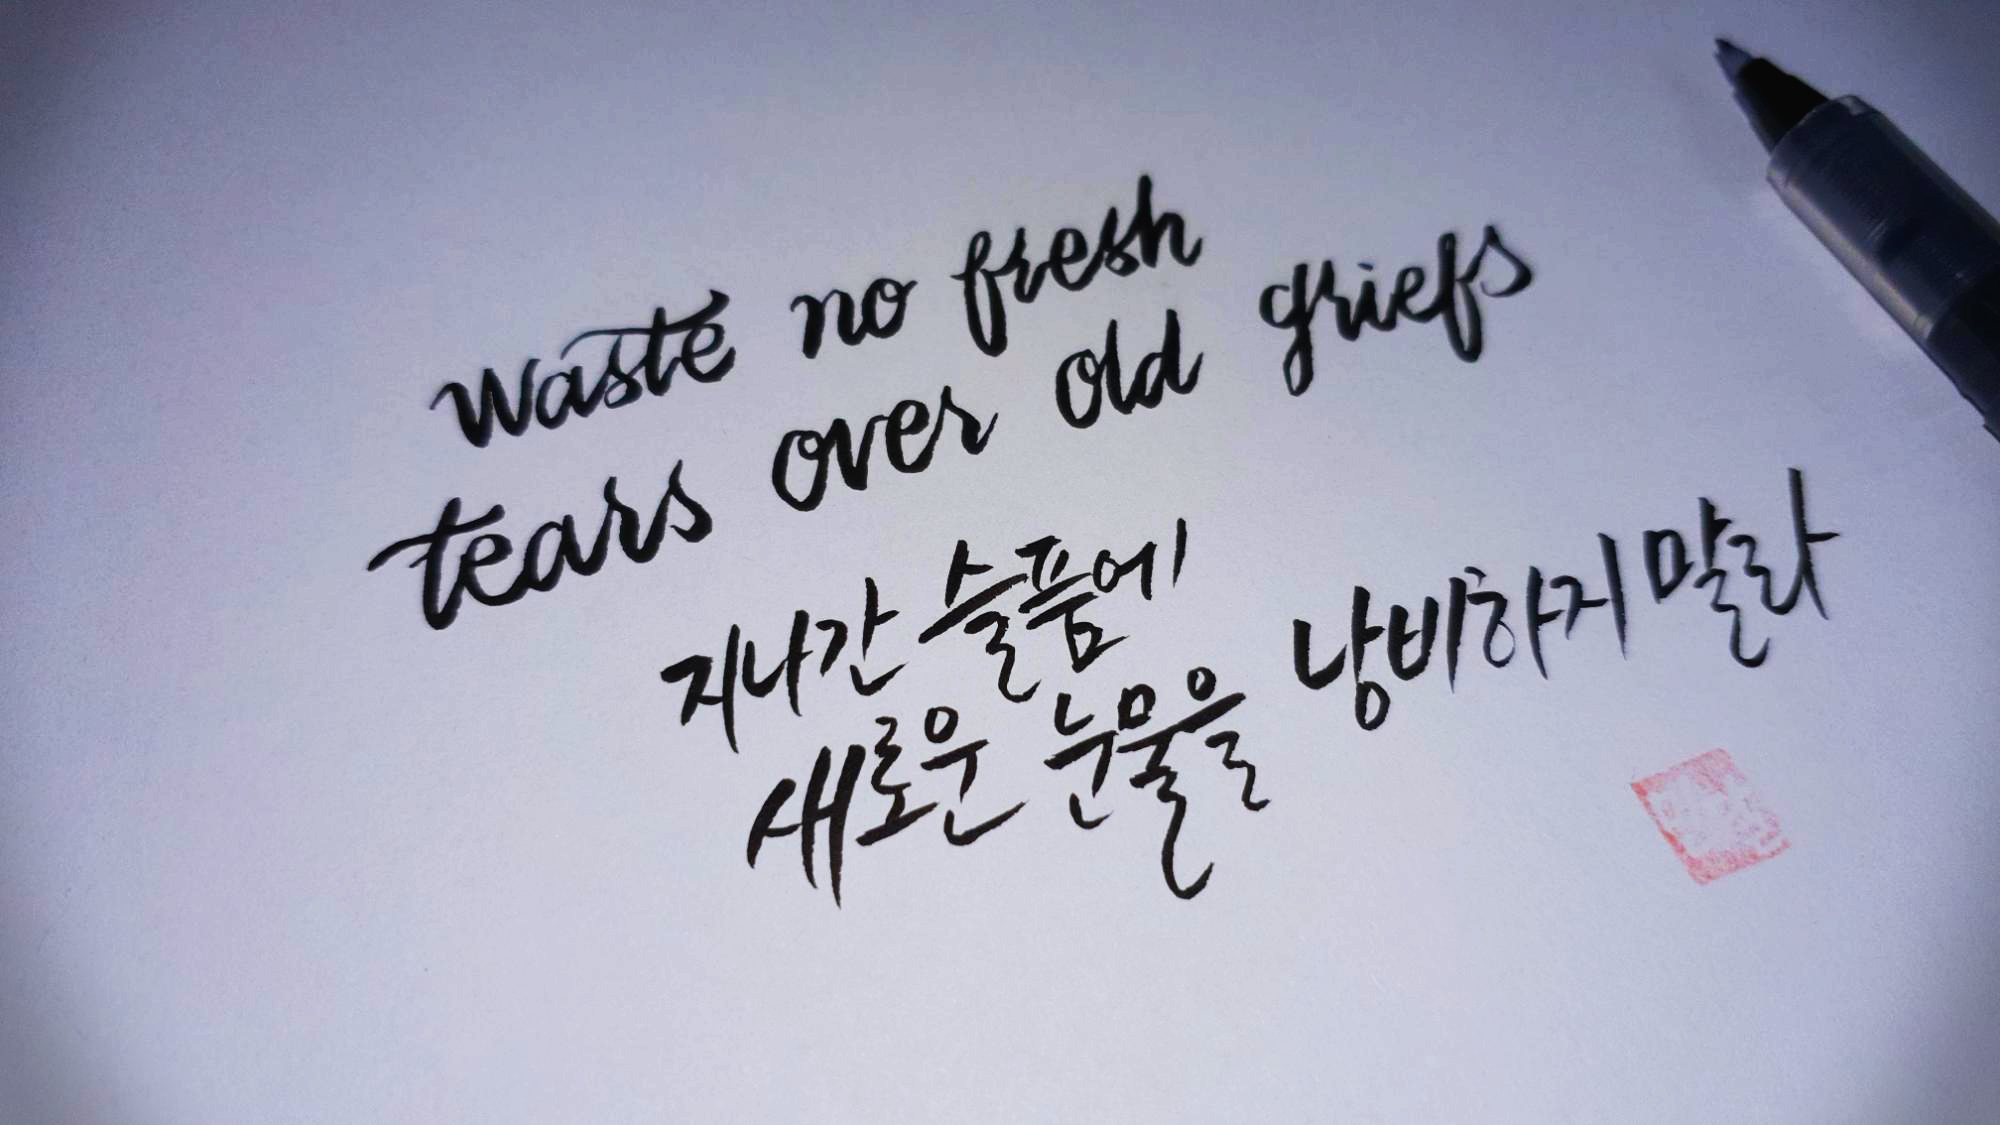 Waste no fresh
tears over old griefs
지나간 슬픔에
새로운 눈물을 낭비하지 말라